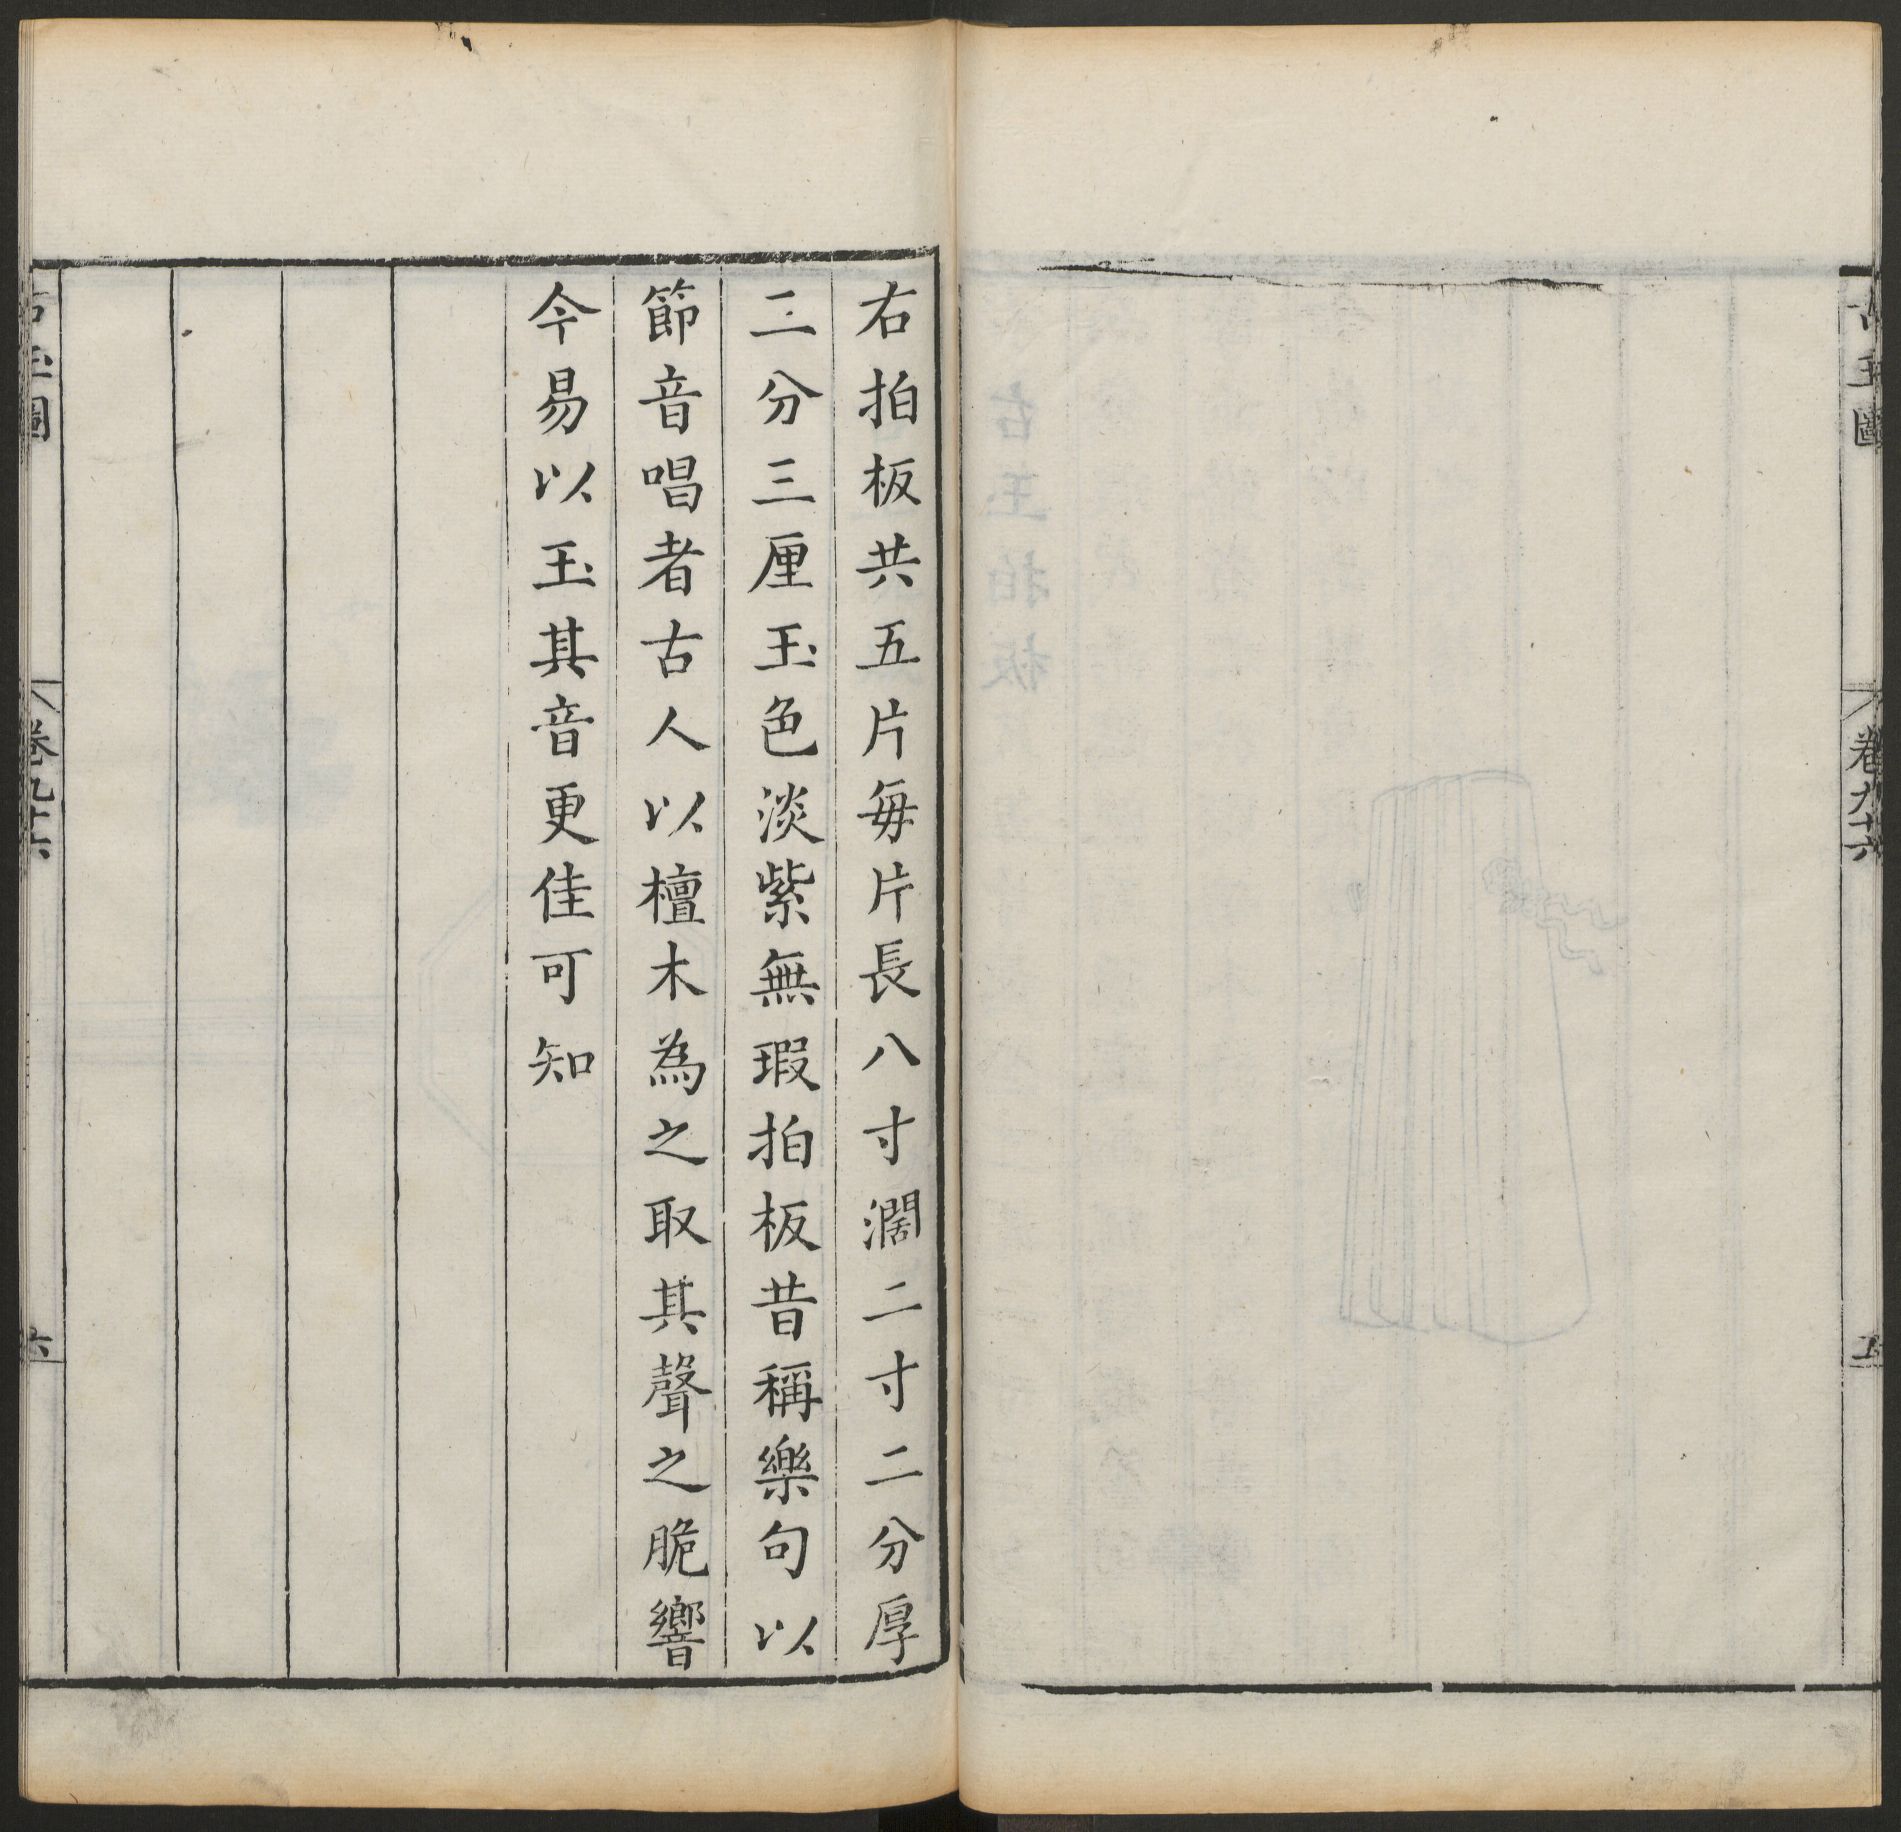 古玉圖
卷九十六
五
右拍板共五片每片長八寸濶二寸二分厚
二分三厘玉色淡紫無瑕拍板昔稱樂句以
節音唱者古人以檀木為之取其聲之脆響
今易以玉其音更佳可知
古玉圖
卷九十六
六